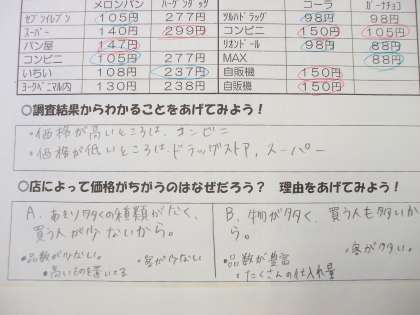 メロンパン ハーゲンダッツ コーラ ガーナチョコ
セブンイレブン 105円 277円 ツルハドラッグ 98円 98円
スーパー 140円 299円 コンビニ 150円 105円
パン屋 147円 リオンドール 98円 88円
コンビニ 105円 277円 MAX 88円
いちい 108円 237円 自販機 150円
ヨークベニマル内 130円 238円 自販機 150円
○調査結果からわかることをあげてみよう！
・価格が高いところは、コンビニ
・価格が低いところは、ドラッグストア、スーパー
○店によって価格がちがうのはなぜだろう？ 理由をあげてみよう！
A. あまり多くの種類がなく、
買う人が少ないから。
・品数が少ない。 ・客が少ない
・高いものを置いてる
B. 物が多く、買う人も多いか
ら。
・客が多い。
・品数が豊富
・たくさんの仕入れ量